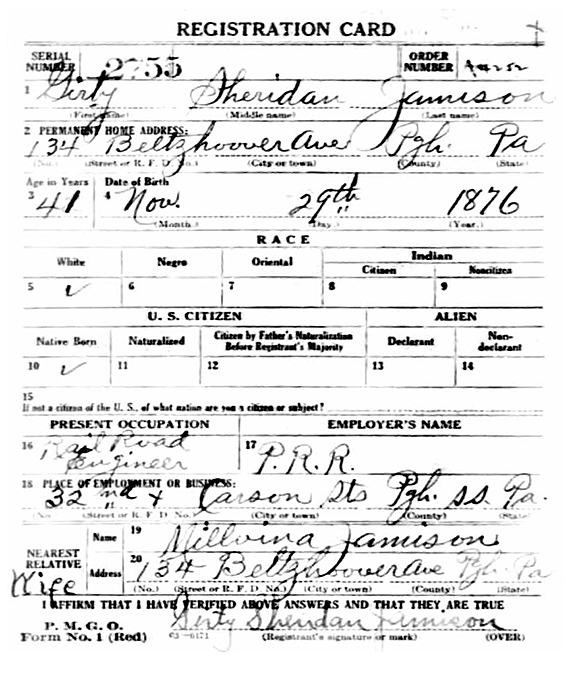 REGISTRATION CARD
SERIAL NUMBER 2755 ORDER NUMBER
1 Girty Sheridan Jamison
(First name) (Middle name) (Last name)
2 PERMANENT HOME ADDRESS:
134 Beltzhoover Ave Pgh. Pa
(No.) (Street or R. F. D. No.) (City or town) (County) (State)
Age in Years Date of Birth
3 41 4 Nov. 29th 1876
(Month.) (Day.) (Year.)
RACE
White Negro Oriental Indian
Citizen Noncitizen
5 ✓ 6 7 8 9
U. S. CITIZEN ALIEN
Native Born Naturalized Citizen by Father's Naturalization Before Registrant's Majority Declarant Non-declarant
10 ✓ 11 12 13 14
15
If not a citizen of the U. S., of what nation are you a citizen or subject?
PRESENT OCCUPATION EMPLOYER'S NAME
16 Rail Road Engineer 17 P.R.R.
18 PLACE OF EMPLOYMENT OR BUSINESS:
32nd + Carson Sts Pgh. SS. Pa.
(No.) (Street or R. F. D. No.) (City or town) (County) (State)
NEAREST RELATIVE Name 19 Millvina Jamison
Wife Address 20 134 Beltzhoover Ave Pgh. Pa
(No.) (Street or R. F. D. No.) (City or town) (County) (State)
I AFFIRM THAT I HAVE VERIFIED ABOVE ANSWERS AND THAT THEY ARE TRUE
P. M. G. O. Girty Sheridan Jimison
Form No. 1 (Red) 03-6171 (Registrant's signature or mark) (OVER)